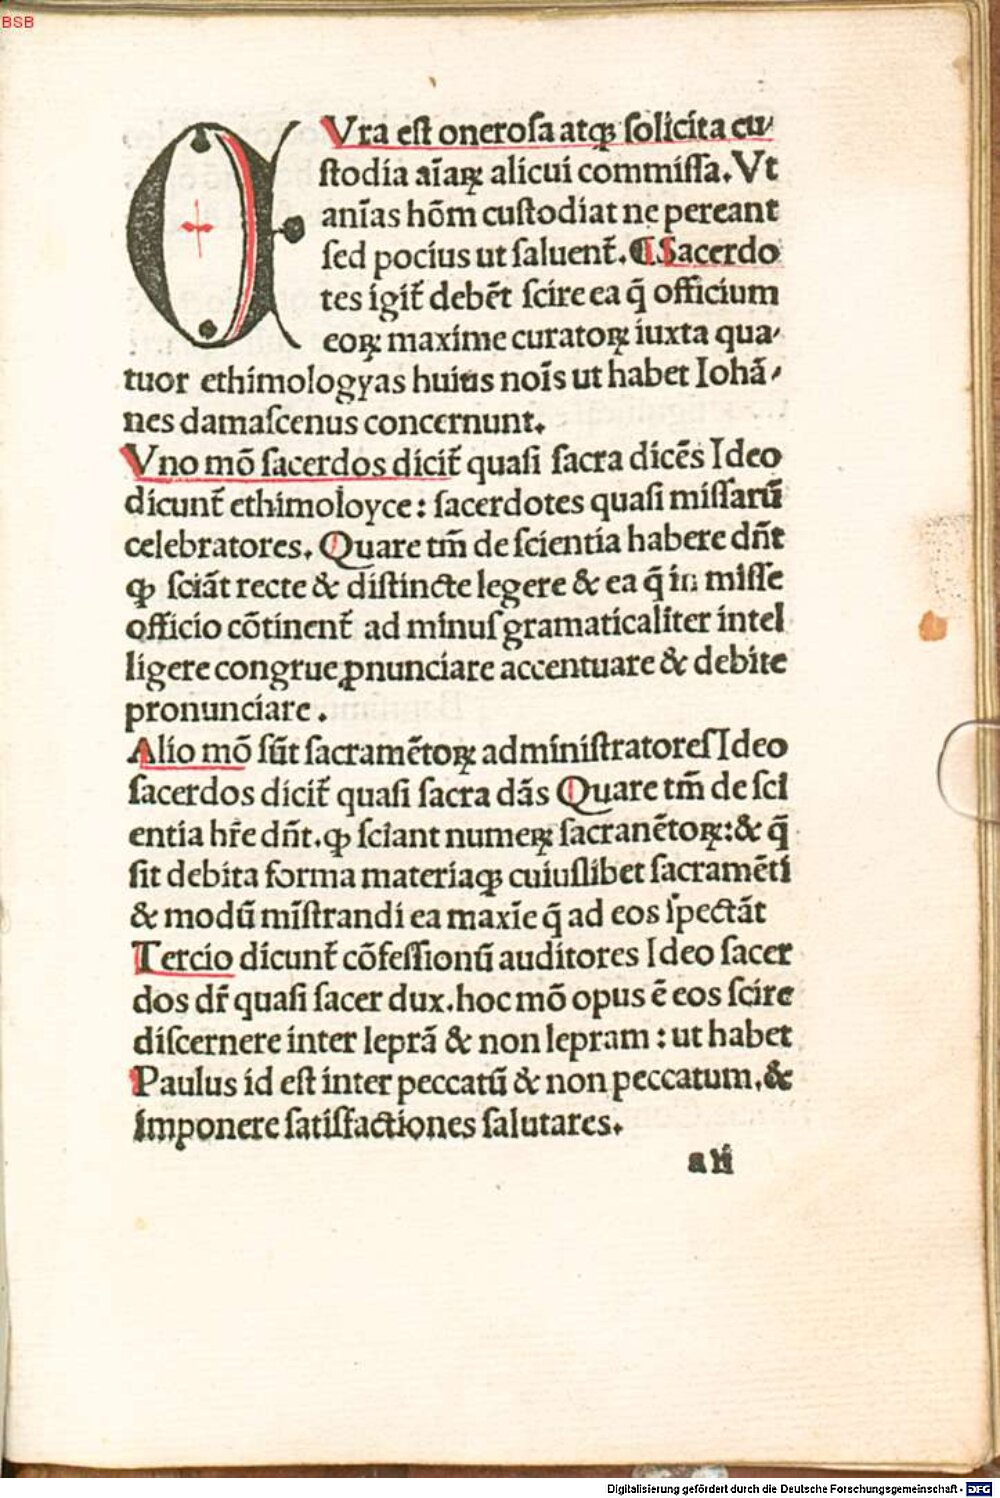 BSB
CVra est onerosa atqꝫ solicita cu⸗
stodia aīaꝝ alicui commissa. Vt
anīas hōm custodiat ne pereant
sed pocius ut saluent̄. ¶ Sacerdo
tes igit̄ debēt scire ea q̄ officium
eoꝝ maxime curatoꝝ iuxta qua⸗
tuor ethimologyas huius noīs ut habet Iohā⸗
nes damascenus concernunt.
Vno mō sacerdos dicit̄ quasi sacra dicēs Ideo
dicunt̄ ethimoloyce: sacerdotes quasi missarū
celebratores. Quare tm̄ de scientia habere dn̄t
ꝙ sciāt recte & distincte legere & ea q̄ in misse
officio cōtinent̄ ad minus gramaticaliter intel
ligere congrue ꝓnunciare accentuare & debite
pronunciare.
Alio mō sūt sacramētoꝝ administratores Ideo
sacerdos dicit̄ quasi sacra dās Quare tm̄ de sci
entia hr̄e dn̄t. ꝙ sciant numeꝝ sacranētoꝝ: & q̄
sit debita forma materiaqꝫ cuiuslibet sacramēti
& modū mīstrandi ea maxīe q̄ ad eos spectāt
Tercio dicunt̄ cōfessionū auditores Ideo sacer
dos dr̄ quasi sacer dux. hoc mō opus ē eos scire
discernere inter leprā & non lepram: ut habet
Paulus id est inter peccatū & non peccatum. &
imponere satisfactiones salutares.
a ii
Digitalisierung gefördert durch die Deutsche Forschungsgemeinschaft - DFG